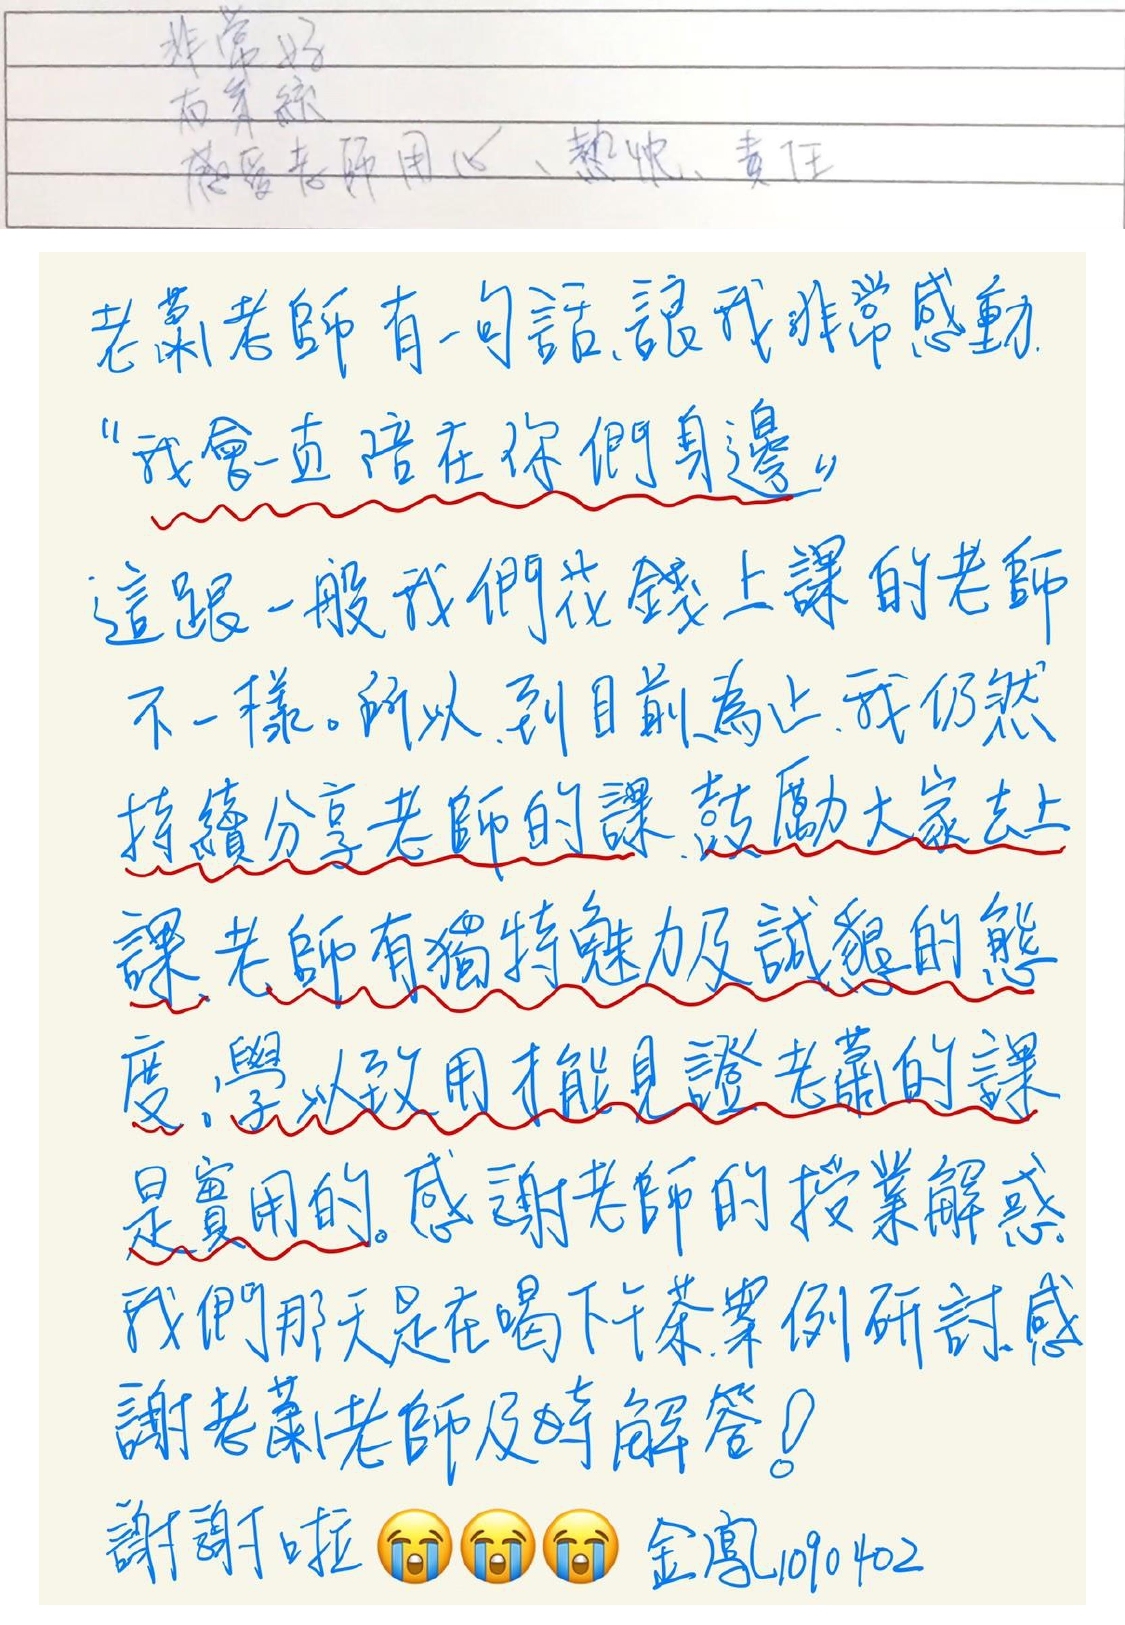 非常好
有業績
感受老師用心、熱忱、責任
老蕭老師有一句話、讓我非常感動.
“我會一直陪在你們身邊”
這跟一般我們花錢上課的老師
不一樣。所以、到目前為止、我仍然
持續分享老師的課、鼓勵大家去上
課、老師有獨特魅力及誠懇的態
度。學以致用才能見證老蕭的課
是實用的。感謝老師的授業解惑.
我們那天是在喝下午茶、案例研討、感
謝老蕭老師及時解答!
謝謝啦😭😭😭 金鳳1090402